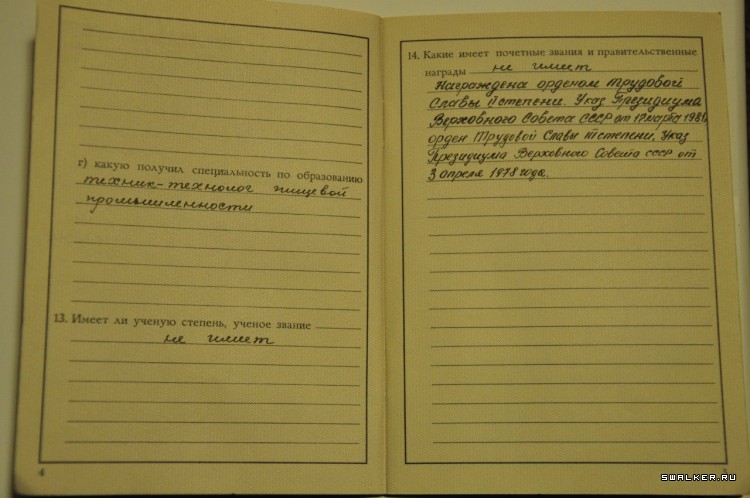 г) какую получил специальность по образованию
техник-технолог пищевой
промышленности
13. Имеет ли ученую степень, ученое звание
не имеет
4
14. Какие имеет почетные звания и правительственные
награды не имеет
Награждена орденом Трудовой
Славы II степени. Указ Президиума
Верховного Совета СССР от 17 марта 1981,
орден Трудовой Славы III степени, Указ
Президиума Верховного Совета СССР от
3 апреля 1978 года.
SWALKER.RU